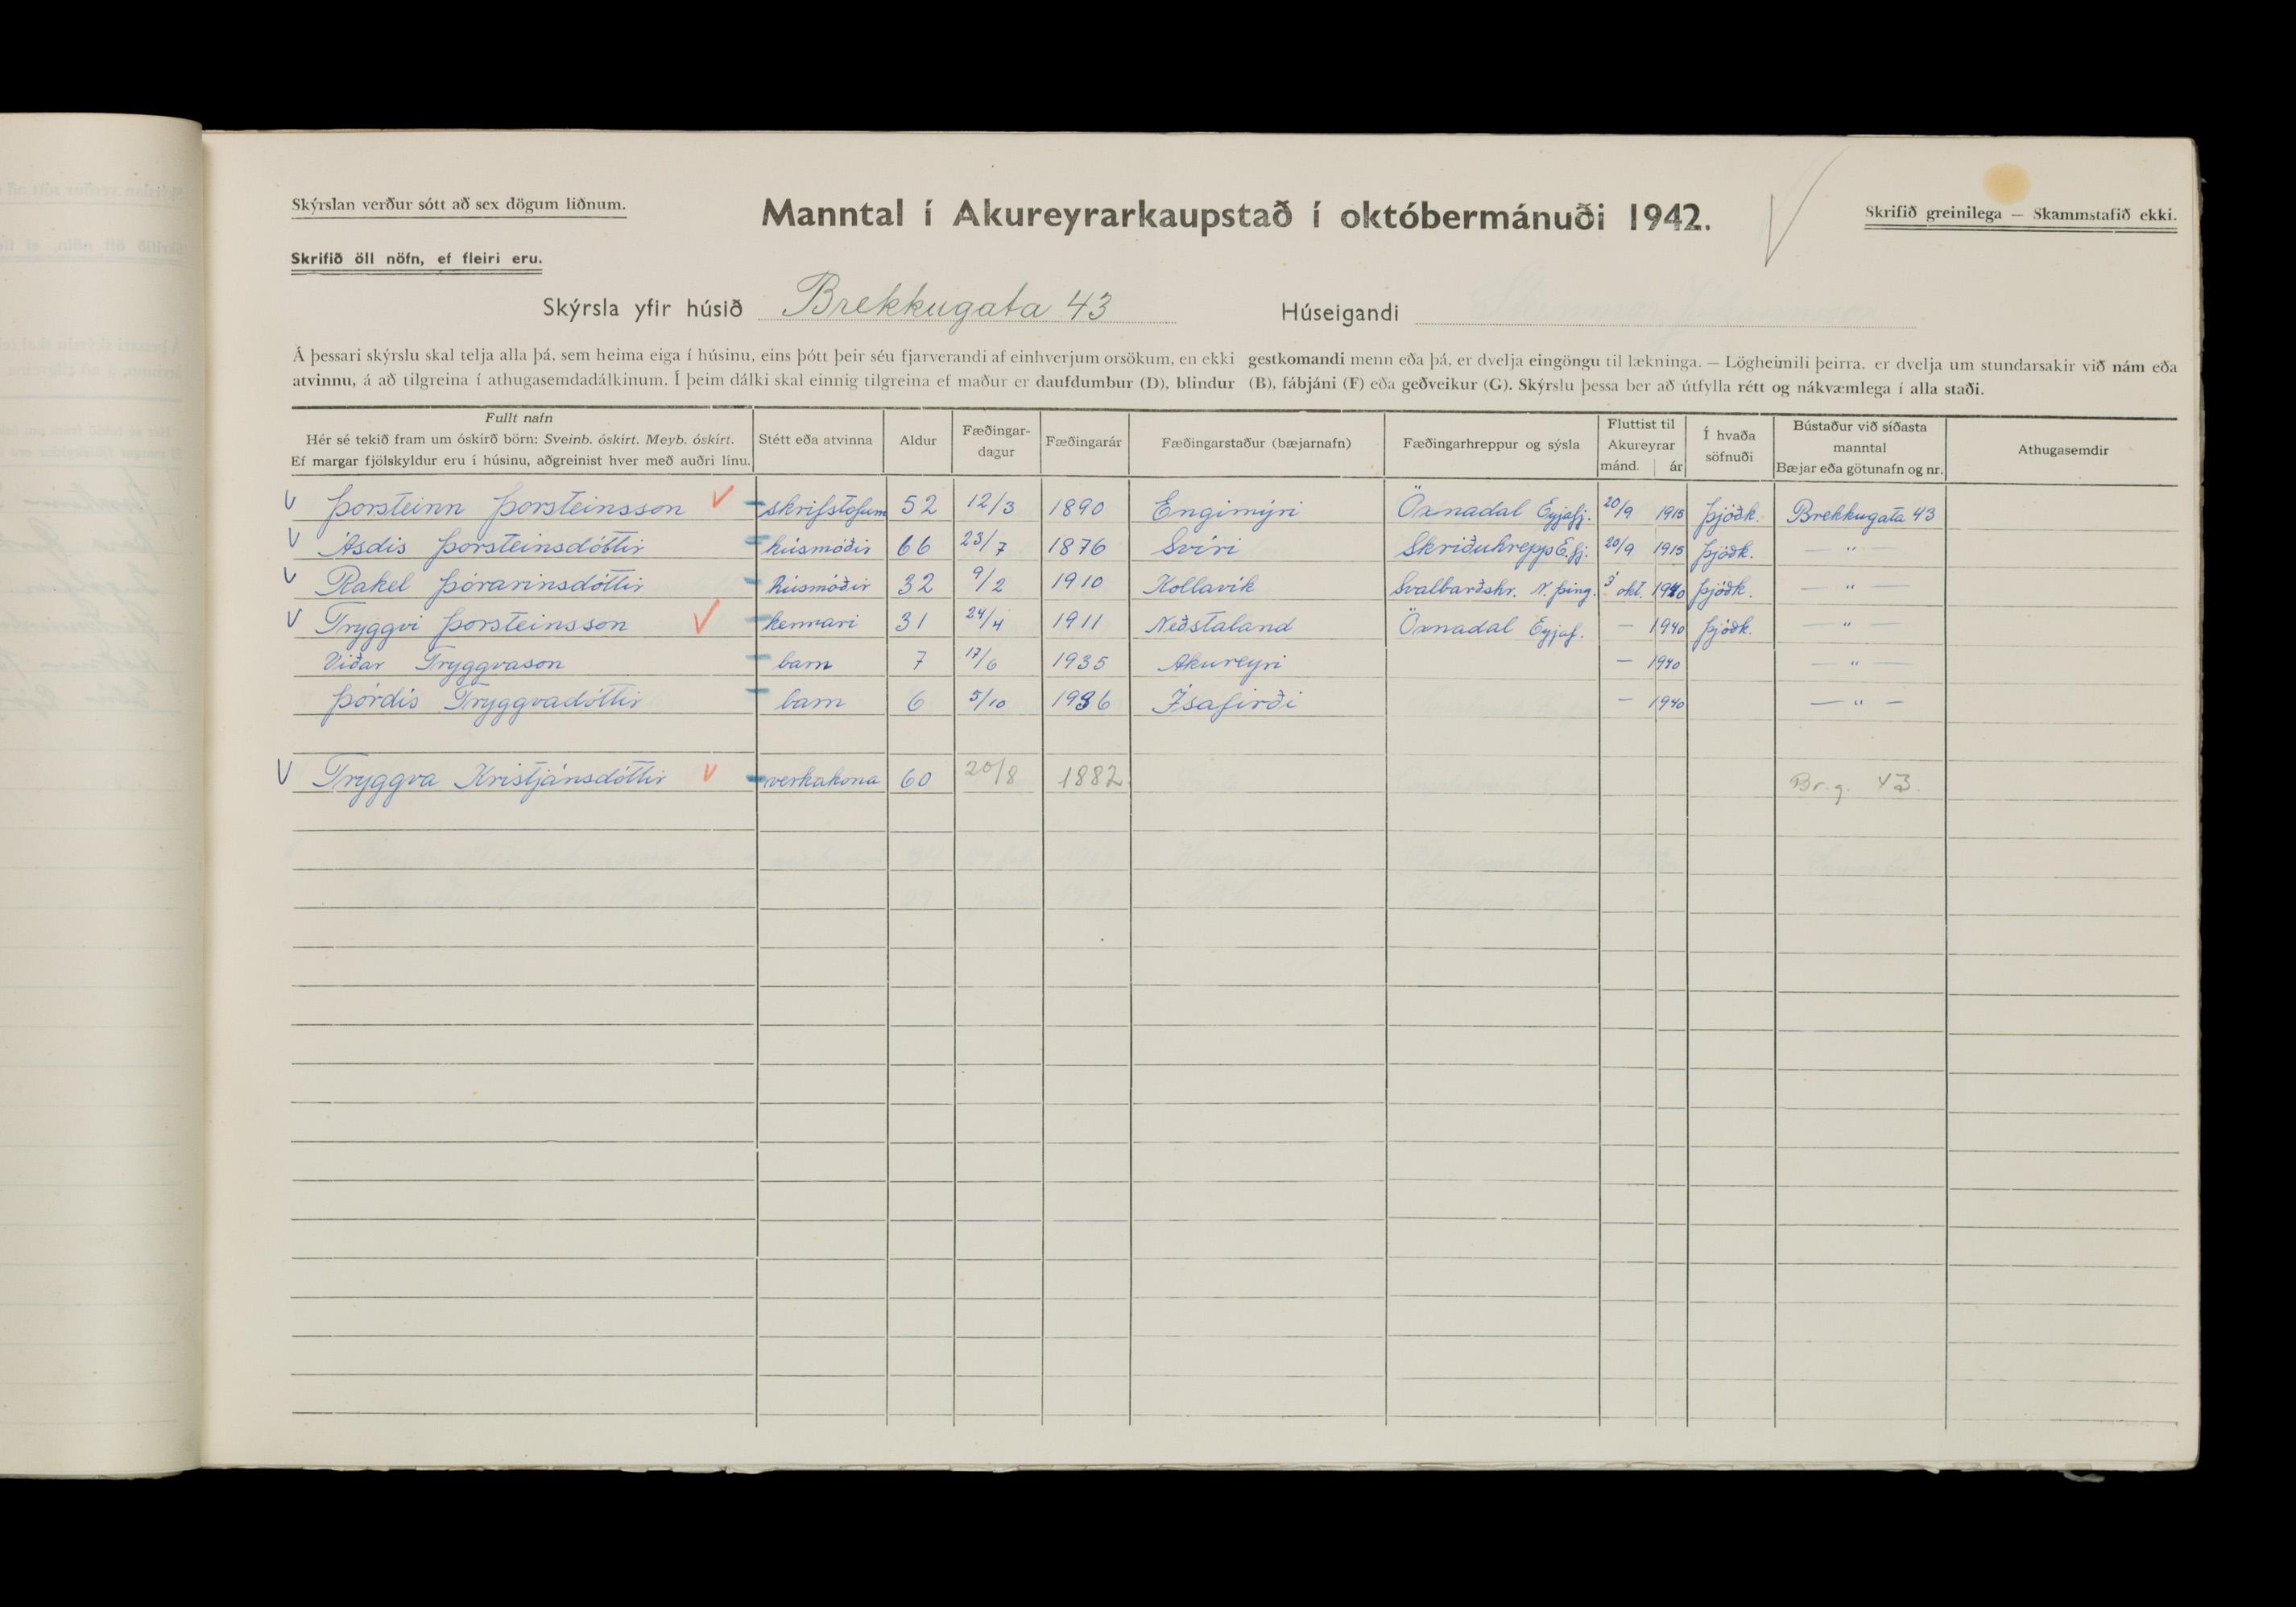 Skýrslan verður sótt að sex dögum liðnum.
Manntal í Akureyrarkaupstað í októbermánuði 1942.
Skrifið greinilega — Skammstafið ekki.
Skrifið öll nöfn, ef fleiri eru.
Skýrsla yfir húsið Brekkugata 43 Húseigandi
Á þessari skýrslu skal telja alla þá, sem heima eiga í húsinu, eins þótt þeir séu fjarverandi af einhverjum orsökum, en ekki gestkomandi menn eða þá, er dvelja eingöngu til lækninga. — Lögheimili þeirra, er dvelja um stundarsakir við nám eða
atvinnu, á að tilgreina í athugasemdadálkinum. Í þeim dálki skal einnig tilgreina ef maður er daufdumbur (D), blindur (B), fábjáni (F) eða geðveikur (G). Skýrslu þessa ber að útfylla rétt og nákvæmlega í alla staði.
Fullt nafn
Hér sé tekið fram um óskírð börn: Sveinb. óskírt. Meyb. óskírt.
Ef margar fjölskyldur eru í húsinu, aðgreinist hver með auðri línu.
Stétt eða atvinna
Aldur
Fæðingar-
dagur
Fæðingarár
Fæðingarstaður (bæjarnafn)
Fæðingarhreppur og sýsla
Fluttist til
Akureyrar
mánd. ár
Í hvaða
söfnuði
Bústaður við síðasta
manntal
Bæjar eða götunafn og nr.
Athugasemdir
V Þorsteinn Þorsteinsson skrifstofum 52 12/3 1890 Engimýri Öxnadal Eyjafj. 20/9 1915 Þjóðk. Brekkugata 43
V Ásdís Þorsteinsdóttir húsmóðir 66 23/7 1876 Svíri Skriðuhrepp E.fj. 20/9 1915 Þjóðk. — " —
V Rakel Þórarinsdóttir húsmóðir 32 9/2 1910 Kollavík Svalbarðshr. N. Þing. 3 okt. 1940 Þjóðk. — " —
V Tryggvi Þorsteinsson kennari 31 24/4 1911 Neðstaland Öxnadal Eyjaf. — 1940 Þjóðk. — " —
Viðar Tryggvason barn 7 17/6 1935 Akureyri — 1940 — " —
Þórdís Tryggvadóttir barn 6 5/10 1936 Ísafirði — 1940 — " —
V Tryggva Kristjánsdóttir verkakona 60 20/8 1882 Br.g. 43.